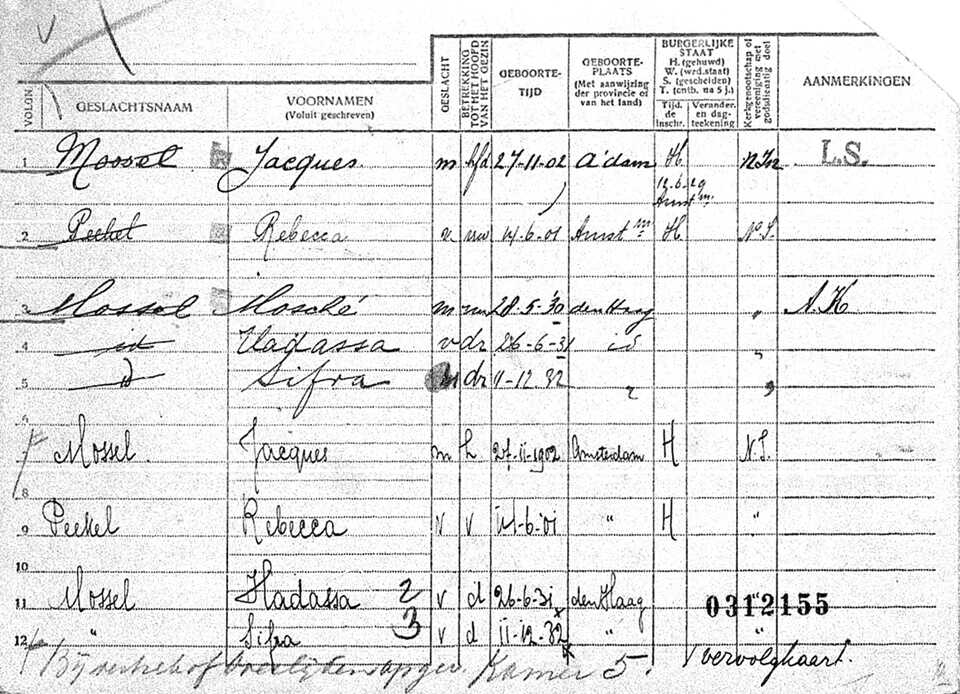 VOLGN. GESLACHTSNAAM VOORNAMEN (Voluit geschreven) GESLACHT BETREKKING TOT HET HOOFD VAN HET GEZIN GEBOORTE-TIJD GEBOORTE-PLAATS (Met aanwijzing der provincie of van het land) BURGERLIJKE STAAT H. (gehuwd) W. (wed.staat) S. (gescheiden) T. (ontb. na 5 j.) Tijd. de inschr. Verander. en dag-teekening Kerkgenootschap of vereeniging met godsdienstig doel AANMERKINGEN
1 Mossel Jacques m hfd 27-11-02 A'dam H L.S.
12-6-29
Amst m.
2 Peekel Rebecca v vrw 14-6-01 Amst m. H N.I.
3 Mossel Mosché m zn 28-5-'30 den Haag " A.K
4 id Hadassa v dr 26-6-31 id "
5 id Sifra dr 11-12.32 " "
7 Mossel. Jacques m h 27-11-1902 Amsterdam H N.I.
8
9 Peekel Rebecca v v 14-6-01 " H "
10
11 Mossel Hadassa 2 v d 26-6-31 den Haag 0312155
12 " Sifra 3 v d 11-12-32 " "
Bij vertrek of overlijden opgev. Kamer 5. vervolgkaart.